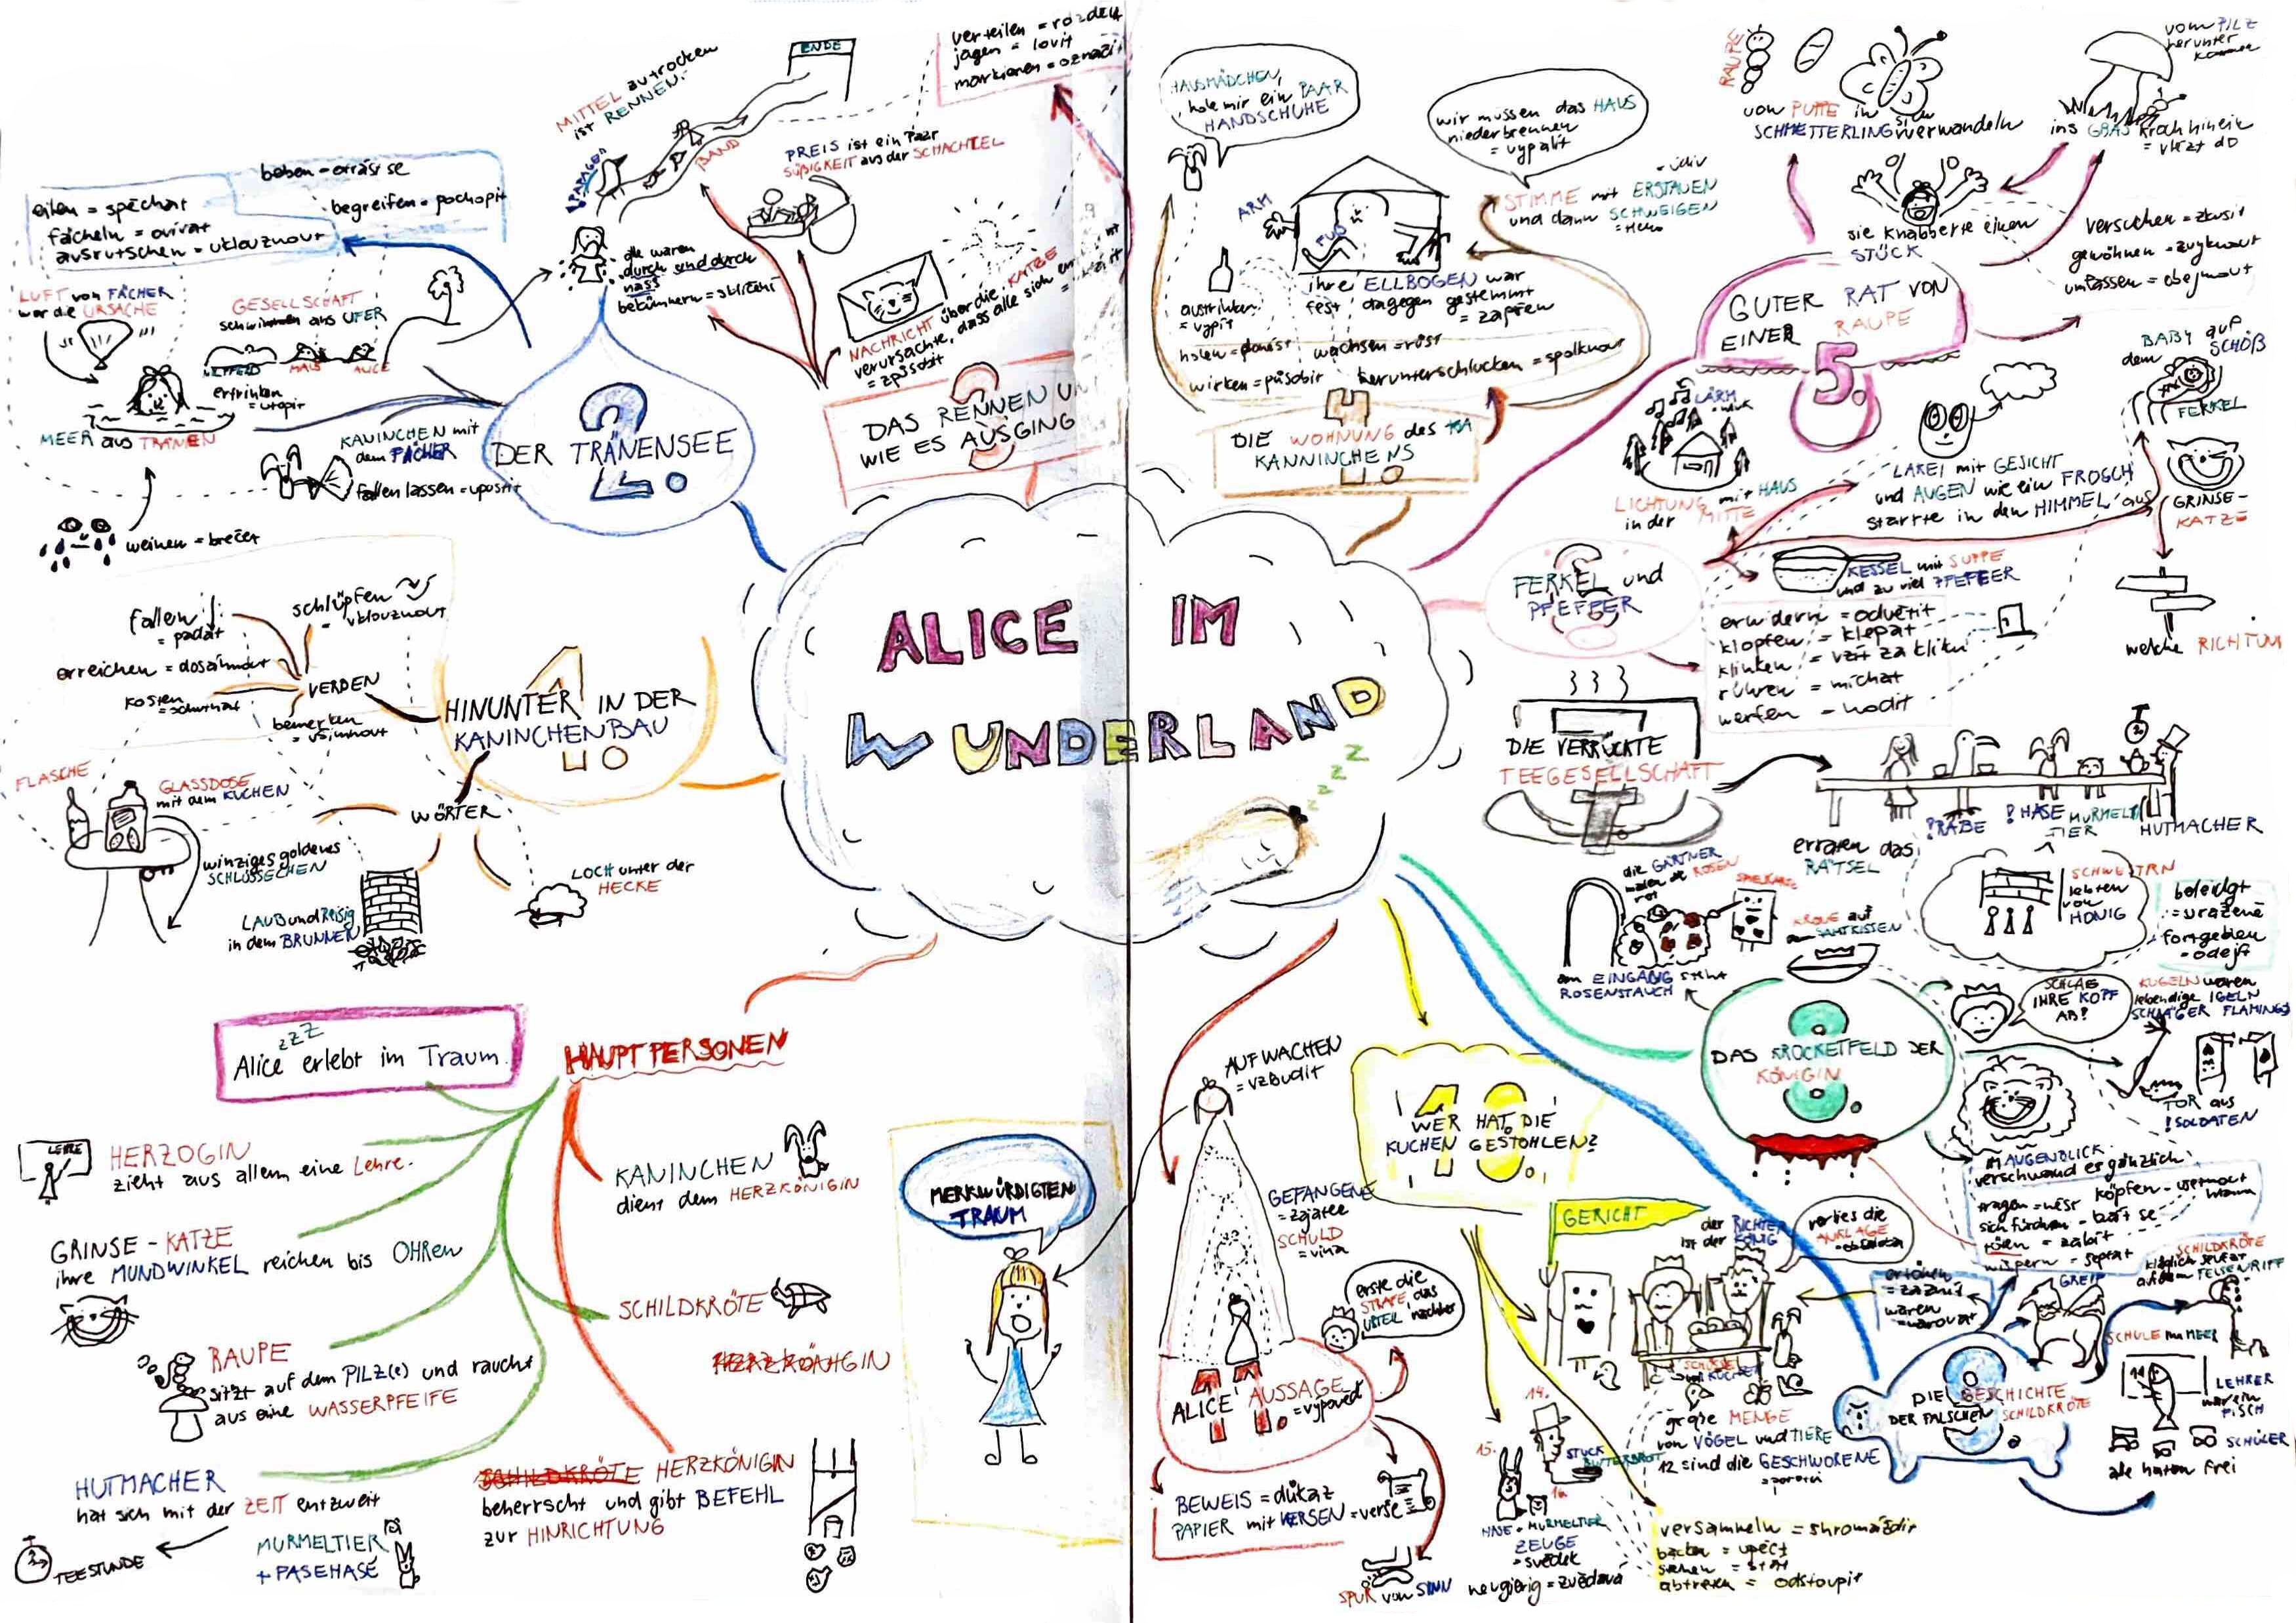 ALICE IM
WUNDERLAND
HINUNTER IN DER
KANINCHENBAU
1.
VERBEN
fallen
= padat
schlüpfen
= vklouznout
erreichen = dosáhnout
kosten
bemerken
= všimnout
WÖRTER
FLASCHE
GLASSDOSE
mit dem KUCHEN
winziges goldenes
SCHLÜSSECHEN
LAUB und Reisig
in dem BRUNNEN
LOCH unter der
HECKE
DER TRÄNENSEE
2.
beben - otřást se
begreifen = pochopit
eilen = spěchat
fächeln = ovívat
ausrutschen = uklouznout
LUFT von FÄCHER
war die URSACHE
GESELLSCHAFT
schwimmen ans UFER
MAUS
ALICE
ertrinken
= utopit
MEER aus TRÄNEN
KANINCHEN mit
dem FÄCHER
fallen lassen = upustit
weinen = brečet
DAS RENNEN U
WIE ES AUSGING
3
MITTEL zu trocken
ist RENNEN.
ENDE
PAPAGEI
BAND
verteilen = rozdělit
jagen = lovit
markieren = označit
PREIS ist ein Paar
SÜßIGKEIT aus der SCHACHTEL
alle waren
durch und durch
nass
NACHRICHT über die KATZE
verursachte, dass alle sich
= způsobit
DIE WOHNUNG des
KANNINCHENS
4.
HAUSMÄDCHEN,
hole mir ein PAAR
HANDSCHUHE
wir müssen das HAUS
niederbrennen
= vypálit
STIMME mit ERSTAUEN
und dann SCHWEIGEN
ARM
FUß
ihre ELLBOGEN war
fest dagegen gestemmt
= zapřen
austrinken
= vypít
holen = donést
wachsen = růst
wirken = působit
herunterschlucken = spolknout
GUTER RAT VON
EINER RAUPE
5.
RAUPE
von PUPPE in
SCHMETTERLING sich verwandeln
vom PILZ
herunter
ins GRAS kroch hinein
= vlézt do
sie knabberte einen
STÜCK
versuchen = zkusit
gewöhnen = zvyknout
umfassen = obejmout
FERKEL und
PFEFFER
6
LÄRM
LICHTUNG mit HAUS
in der MITTE
LAKEI mit GESICHT
und AUGEN wie ein FROSCH
starrte in den HIMMEL aus
BABY auf
dem SCHÖß
FERKEL
GRINSE-
KATZE
KESSEL mit SUPPE
und zu viel PFEFFER
erwidern = odvětit
klopfen = klepat
klinken = vzít za kliku
rühren = míchat
werfen - hodit
welche RICHTUN
DIE VERRÜCKTE
TEEGESELLSCHAFT
7
! RABE
! HASE
MURMEL
TIER
HUTMACHER
erraten das
RÄTSEL
SCHWESTRN
lebten
von
HONIG
beleidgt
= uraženě
fortgehen
- odejít
DAS KROCKETFELD DER
KÖNIGIN
8.
die GÄRTNER
malen die ROSEN
rot
SPIELKARTE
am EINGANG steht
ROSENSTAUCH
KRONE auf
SAMTKISSEN
SCHLAG
IHRE KOPF
AB!
KUGELN waren
lebendige IGELN
SCHLÄGER FLAMINGS
TOR aus
! SOLDATEN
IM AUGENBLICK
verschwand er gänzlich
tragen = nést
sich fürchten - bát se
töten = zabít
wispern - šeptat
DIE GESCHICHTE
DER FALSCHEN SCHILDKRÖTE
9.
SCHILDKRÖTE
kläglich seufzt
auf dem FELSENRIFF
GREIF
SCHULE im MEER
LEHRER
war ein
FISCH
SCHÜLER
alle hatten frei
WER HAT DIE
KUCHEN GESTOHLEN?
10.
GERICHT
der RICHTER
ist der KÖNIG
verlies die
ANKLAGE
SCHÜSSEL
große MENGE
von VÖGEL und TIERE
12 sind die GESCHWORENE
= porotci
14.
15.
STÜCK
BUTTERBROT
HASE + MURMELTIER
ZEUGE
= svědek
neugierig = zvědavá
versammeln = shromáždit
backen = upéct
stehen = stát
abtreten = odstoupit
ALICE AUSSAGE
= výpověď
11.
AUFWACHEN
= vzbudit
GEFANGENE
= zajatec
SCHULD
= vina
erste die
STRAFE, das
URTEIL nachher
BEWEIS = důkaz
PAPIER mit VERSEN = verše
SPUR von SINN
MERKWÜRDIGTEN
TRAUM
zzz
Alice erlebt im Traum.
HAUPTPERSONEN
LEHRE
HERZOGIN
zieht aus allem eine Lehre.
GRINSE - KATZE
ihre MUNDWINKEL reichen bis OHREN
RAUPE
sitzt auf dem PILZ(e) und raucht
aus eine WASSERPFEIFE
HUTMACHER
hat sich mit der ZEIT entzweit
TEESTUNDE
MURMELTIER
+ FASEHASE
KANINCHEN
dient dem HERZKÖNIGIN
SCHILDKRÖTE
HERZKÖNIGIN
SCHILDKRÖTE HERZKÖNIGIN
beherrscht und gibt BEFEHL
zur HINRICHTUNG